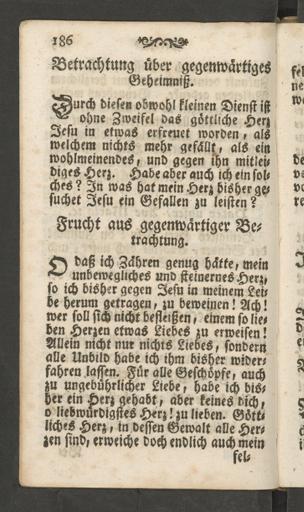 186
Betrachtung über gegenwärtiges
Geheimniß.
Durch diesen obwohl kleinen Dienst ist
ohne Zweifel das göttliche Herz
Jesu in etwas erfreuet worden, als
welchem nichts mehr gefällt, als ein
wohlmeinendes, und gegen ihn mitlei-
diges Herz. Habe aber auch ich ein sol-
ches? In was hat mein Herz bisher ge-
suchet Jesu ein Gefallen zu leisten?
Frucht aus gegenwärtiger Be-
trachtung.
O daß ich Zähren genug hätte, mein
unbewegliches und steinernes Herz,
so ich bisher gegen Jesu in meinem Lei-
be herum getragen, zu beweinen! Ach!
wer soll sich nicht befleißen, einem so lie-
ben Herzen etwas Liebes zu erweisen!
Allein nicht nur nichts Liebes, sondern
alle Unbild habe ich ihm bisher wider-
fahren lassen. Für alle Geschöpfe, auch
zu ungebührlicher Liebe, habe ich bis-
her ein Herz gehabt, aber keines dich,
o liebwürdigstes Herz! zu lieben. Gött-
liches Herz, in dessen Gewalt alle Her-
zen sind, erweiche doch endlich auch mein
fel-